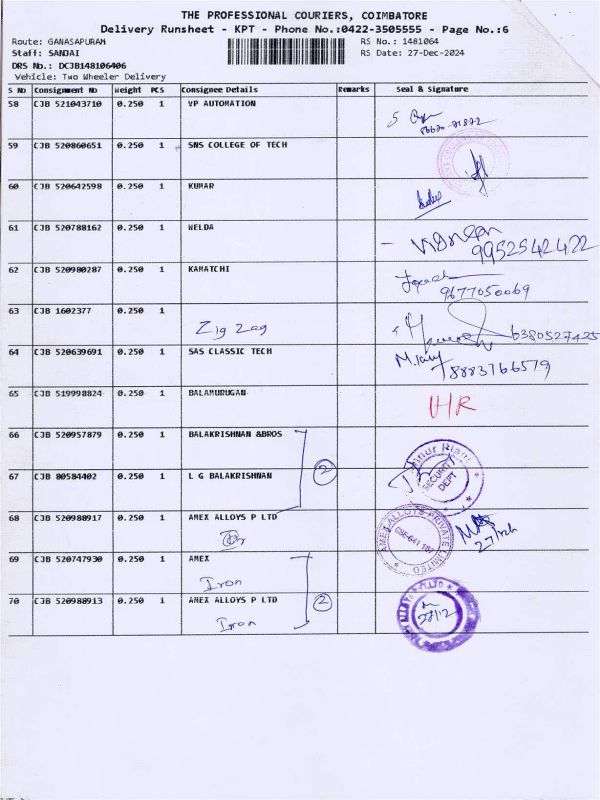 THE PROFESSIONAL COURIERS, COIMBATORE
Delivery Runsheet - KPT - Phone No.:0422-3505555 - Page No.:6
Route: GANASAPURAM RS No.: 1481064
Staff: SANJAI RS Date: 27-Dec-2024
DRS No.: DCJB148106406
Vehicle: Two Wheeler Delivery
S No Consignment No Weight PCS Consignee Details Remarks Seal & Signature
58 CJB 521043710 0.250 1 VP AUTOMATION
59 CJB 520860651 0.250 1 SNS COLLEGE OF TECH
60 CJB 520642598 0.250 1 KUMAR
61 CJB 520788162 0.250 1 WELDA
9952542422
62 CJB 520980287 0.250 1 KAMATCHI
9677050069
63 CJB 1602377 0.250 1
Zig Zag 6380527425
64 CJB 520639691 0.250 1 SAS CLASSIC TECH
8883766579
65 CJB 519998824 0.250 1 BALAMURUGAN
66 CJB 520957879 0.250 1 BALAKRISHNAN &BROS
2
SECURITY DEPT
67 CJB 80584402 0.250 1 L G BALAKRISHNAN
68 CJB 520988917 0.250 1 AMEX ALLOYS P LTD
AMEX ALLOYS PRIVATE LIMITED
27/12
69 CJB 520747930 0.250 1 AMEX
Iron
70 CJB 520988913 0.250 1 AMEX ALLOYS P LTD
2
Iron